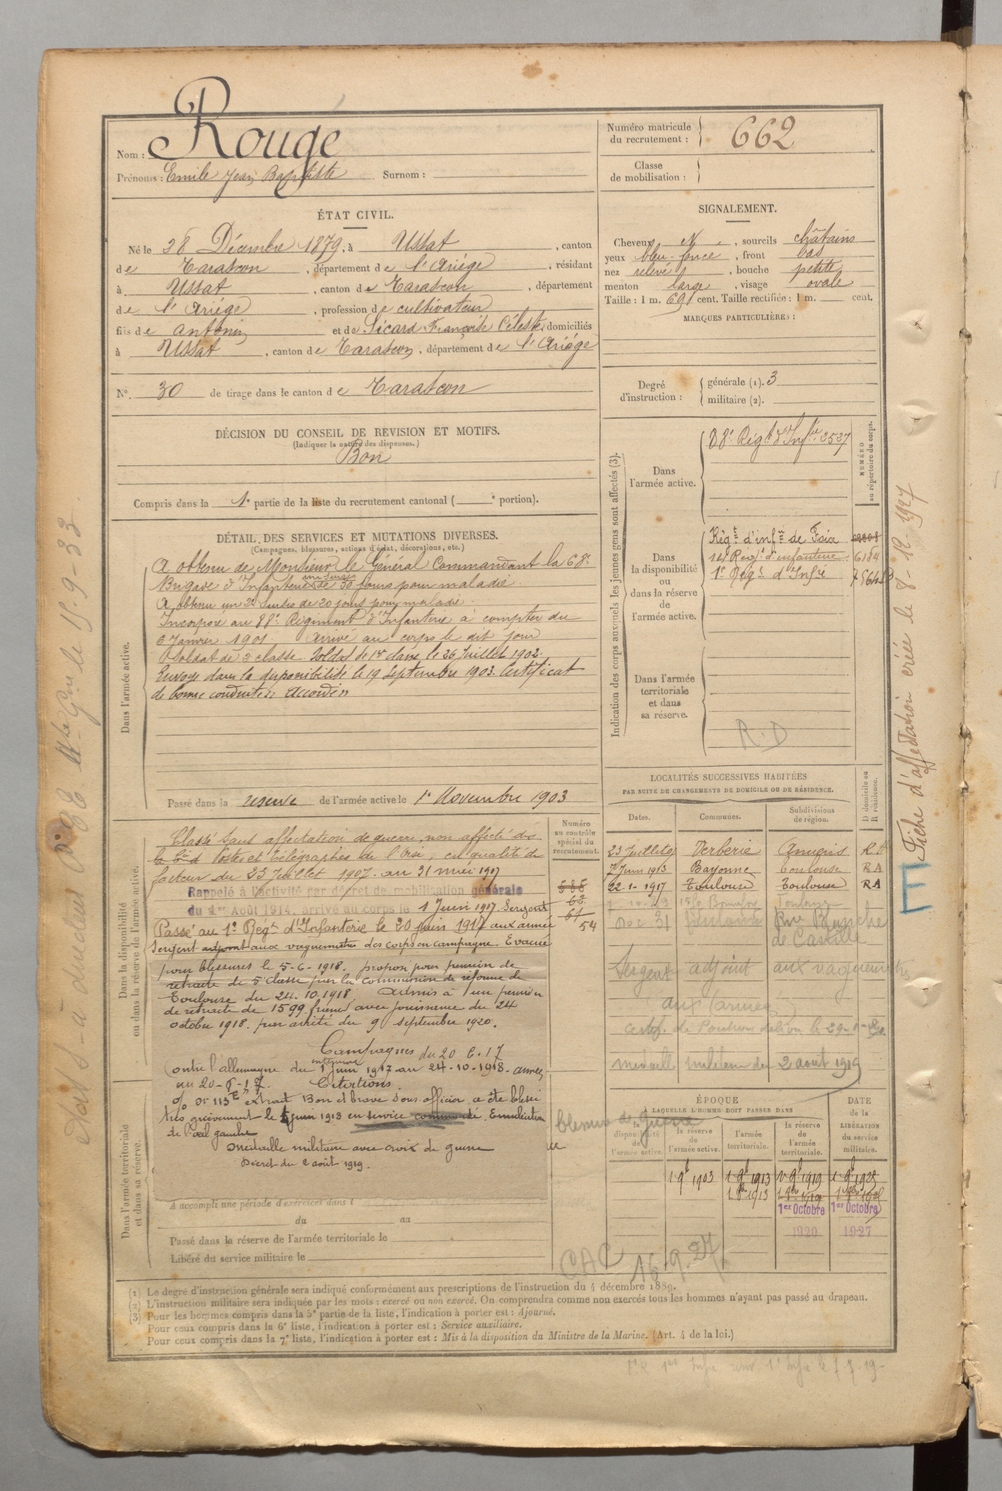 Nom : Rougé
Prénoms : Emile Jean Baptiste Surnom :
Numéro matricule du recrutement : 662
Classe de mobilisation :
ÉTAT CIVIL.
Né le 28 Décembre 1879, à Ussat, canton
de Tarascon, département de l'Ariège, résidant
à Ussat, canton de Tarascon, département
de l'Ariège, profession de cultivateur
fils de Antonin et de Sicard Françoise Céleste, domiciliés
à Ussat, canton de Tarascon, département de l'Ariège
N°. 30 de tirage dans le canton de Tarascon
SIGNALEMENT.
Cheveux N, sourcils châtains
yeux bleu foncé, front bas
nez relevé, bouche petite
menton large, visage ovale
Taille : 1 m. 69 cent. Taille rectifiée : 1 m. cent.
MARQUES PARTICULIÈRES :
Degré d'instruction : générale (1). 3
militaire (2).
DÉCISION DU CONSEIL DE REVISION ET MOTIFS.
(Indiquer la nature des dispenses.)
Bon
Compris dans la 1e partie de la liste du recrutement cantonal ( e portion).
DÉTAIL DES SERVICES ET MUTATIONS DIVERSES.
(Campagnes, blessures, actions d'éclat, décorations, etc.)
Dans l'armée active.
A obtenu de Monsieur le Général Commandant la 68e
Brigade d'Infanterie un sursis de 30 jours pour maladie.
A obtenu un 2e sursis de 20 jours pour maladie.
Incorporé au 88e Régiment d'Infanterie à compter du
6 Janvier 1901 arrivé au corps le dit jour
Soldat de 2e classe. Soldat de 1re classe le 26 Juillet 1902.
Envoyé dans la disponibilité le 19 Septembre 1903. Certificat
de bonne conduite accordé
Passé dans la réserve de l'armée active le 1er Novembre 1903
Indication des corps auxquels les jeunes gens sont affectés (3).
NUMÉRO au répertoire du corps.
Dans l'armée active.
88e Régt d'Infie 2527
Dans la disponibilité ou dans la réserve de l'armée active.
Régt d'infie de Foix
14e Régt d'infanterie 6184
1er Régt d'Infie
Dans l'armée territoriale et dans sa réserve.
R.D
LOCALITÉS SUCCESSIVES HABITÉES
PAR SUITE DE CHANGEMENTS DE DOMICILE OU DE RÉSIDENCE.
Dates. Communes. Subdivisions de région. D domicile ou R résidence.
Verberie Amiens
7 Juin 1913 Bayonne Toulouse RA
22-1-1917 Toulouse Toulouse RA
Dec 31 Toulouse Rue Blanche
de Castille
Sergent adjoint aux vaguemestre
aux armées
médaille militaire du 2 aout 1919
Dans la disponibilité ou dans la réserve de l'armée active.
Numéro au contrôle spécial du recrutement.
Classé sans affectation de guerre, non affecté des
Postes et télégraphes de l'Oise, en qualité de
facteur du 23 Juillet 1907 au 31 mai 1917
Rappelé à l'activité par décret de mobilisation générale
du 1er Août 1914, arrivé au corps le 1 Juin 1917 Sergent
Passé au 1er Régt d'Infanterie le 20 juin 1917 aux armées 54
Sergent adjoint aux vaguemestre des corps en campagne. Evacué
pour blessures le 5-6-1918. proposé pour pension de
retraite de 5e classe par la commission de réforme de
Toulouse du 24.10.1918 Admis à une pension
de retraite de 1599 francs avec jouissance du 24
octobre 1918. par arrêté du 9 septembre 1920.
Campagnes du 20 6-17
contre l'allemagne du intérieur 1 juin 1917 au 24-10-1918. armées
Citations
extrait Bon et brave sous officier a été blessé
très grièvement le 5 juin 1918 en service commandé. Enucléation
de l'œil gauche
Médaille militaire avec croix de guerre
Décret du 2 août 1919.
blessure de guerre
Dans l'armée territoriale et dans sa réserve.
A accompli une période d'exercices dans l
du au
Passé dans la réserve de l'armée territoriale le
Libéré du service militaire le
ÉPOQUE
À LAQUELLE L'HOMME DOIT PASSER DANS
la disponibilité de l'armée active. la réserve de l'armée active. l'armée territoriale. la réserve de l'armée territoriale.
DATE de la LIBÉRATION du service militaire.
1er 9bre 1903 1er 9bre 1913 1er 9bre 1919
1er Octobre 1920
1er Octobre 1927
CAC 16.9.27
(1) Le degré d'instruction générale sera indiqué conformément aux prescriptions de l'instruction du 4 décembre 1889.
(2) L'instruction militaire sera indiquée par les mots : exercé ou non exercé. On comprendra comme non exercés tous les hommes n'ayant pas passé au drapeau.
(3) Pour les hommes compris dans la 5e partie de la liste, l'indication à porter est : Ajourné.
Pour ceux compris dans la 6e liste, l'indication à porter est : Service auxiliaire.
Pour ceux compris dans la 7e liste, l'indication à porter est : Mis à la disposition du Ministre de la Marine. (Art. 4 de la loi.)
Fiche d'affectation créée le 8-12-1927
le 15-9-33